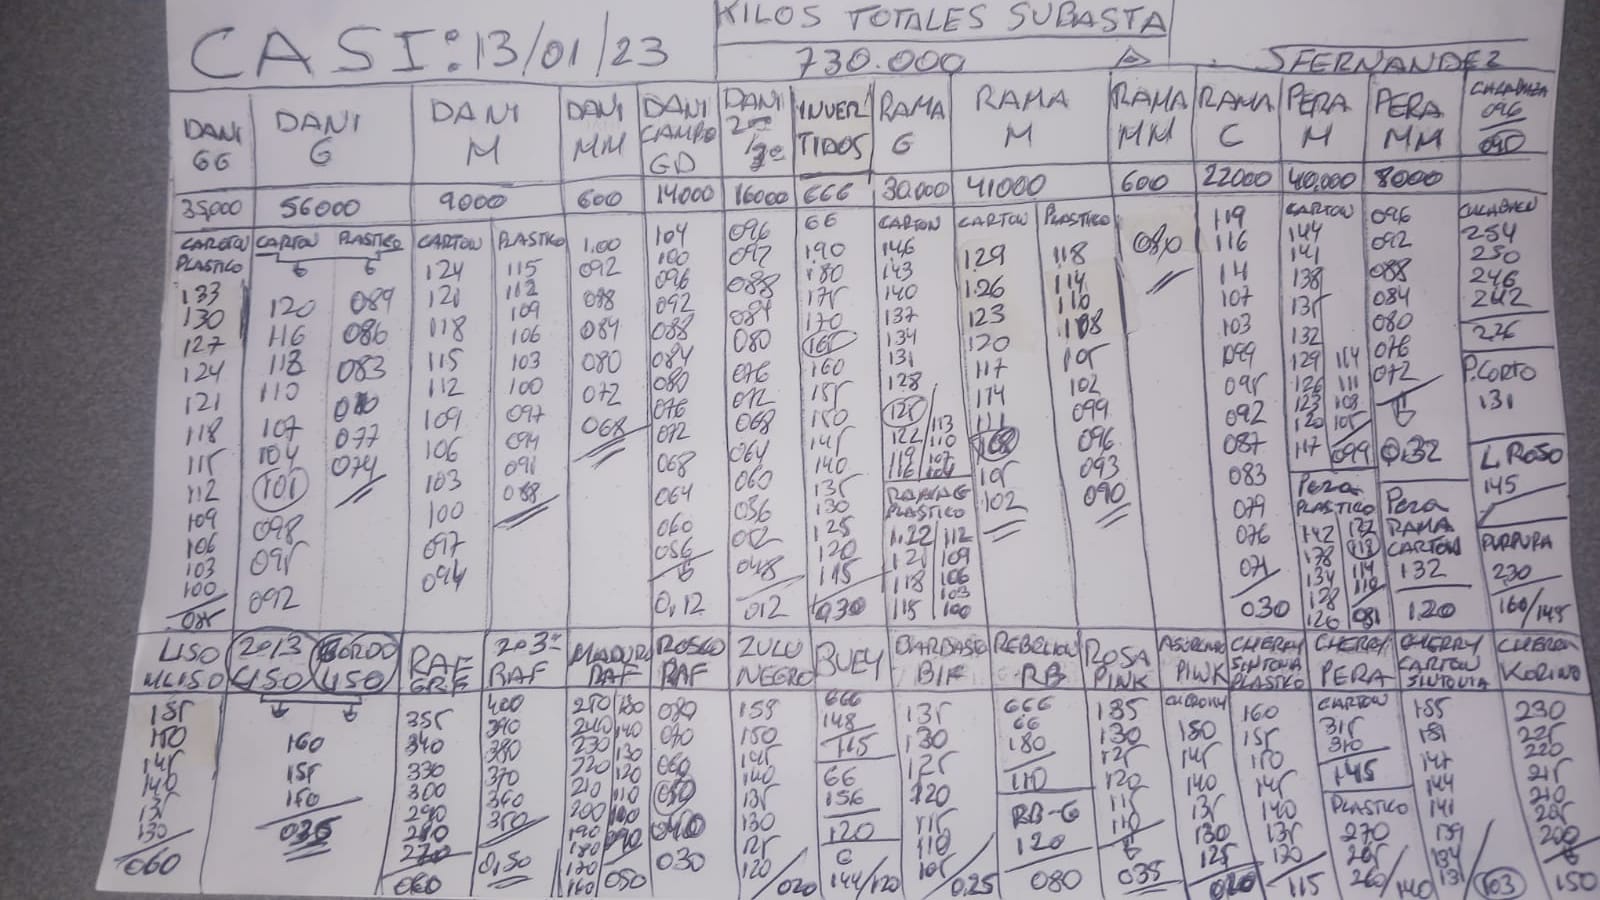 CASI: 13/01/23
KILOS TOTALES SUBASTA
730.000
SFERNANDEZ
DANI GG
DANI G
DANI M
DANI MM
DANI CAMPO GD
DANI
INVERTIDOS
RAMA G
RAMA M
RAMA MM
RAMA C
PERA M
PERA MM
096
35000 56000 9000 600 14000 16000 666 30.000 41000 600 22000 40.000 8000
CARTON PLASTICO
133
130
127
124
121
118
115
112
109
106
103
100
CARTON
120
116
113
110
107
104
101
098
095
092
PLASTICO
089
086
083
080
077
074
CARTON
124
121
118
115
112
109
106
103
100
097
094
PLASTICO
115
112
109
106
103
100
097
094
091
088
1.00
092
088
084
080
072
068
104
100
096
092
088
084
080
076
072
068
064
060
056
0,12
096
092
088
084
080
076
072
068
064
060
056
052
048
012
66
190
180
175
170
165
160
155
150
145
140
135
130
125
120
115
030
CARTON
146
143
140
137
134
131
128
125
122 113
119 110
116 107
104
RAMA G
PLASTICO
1.22 112
121 109
118 106
115 103
100
CARTON
129
126
123
120
117
114
111
108
105
102
PLASTICO
118
114
110
108
105
102
099
096
093
090
080
119
116
111
107
103
099
095
092
087
083
079
076
071
030
CARTON
144
141
138
135
132
129 114
126 111
123 108
120 105
117 099
PERA
PLASTICO
142 122
138 118
134 114
128 110
126 081
096
092
088
084
080
076
072
0,32
PERA
RAMA
CARTON
132
120
254
250
246
242
226
P.CORTO
131
L. ROSO
145
PURPURA
230
160/145
LISO
155
150
145
140
135
130
060
2013 LISO
BORDO LISO
160
155
150
035
RAF GRE
355
340
330
300
290
280
270
060
RAF
400
390
380
370
360
350
0,50
MADURO RAF
250 150
240 140
230 130
220 120
210 110
200 100
190 090
180
170
160 050
ROSCO RAF
080
070
060
050
040
030
ZULU NEGRO
155
150
145
140
135
130
125
120/020
BUEY
666
148
115
66
156
120
C
144/120
BARBASTO
135
130
125
120
115
110
105/0,25
REBELION RB
666
66
180
110
RB-G
120
080
ROSA PINK
135
130
125
120
115
110
035
ASURCADO PINK
150
145
140
135
130
125
020
CHERRY SINTONIA PLASTICO
160
155
150
145
140
135
120
115
CHERRY PERA
CARTON
315
310
145
PLASTICO
270
265
260/140
CHERRY CARTON SINTONIA
155
151
147
144
141
139
134
131
103
CHERRY KORINO
230
225
220
215
210
205
200
150